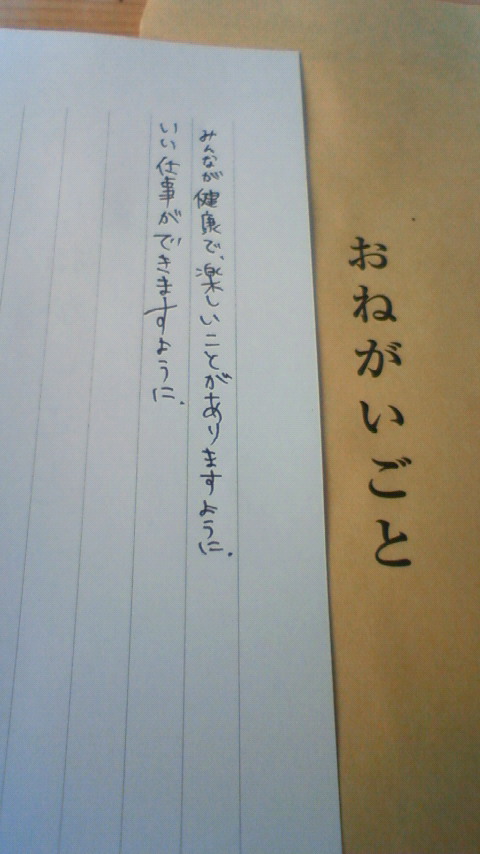 おねがいごと
みんなが健康で、楽しいことがありますように.
いい仕事ができますように.